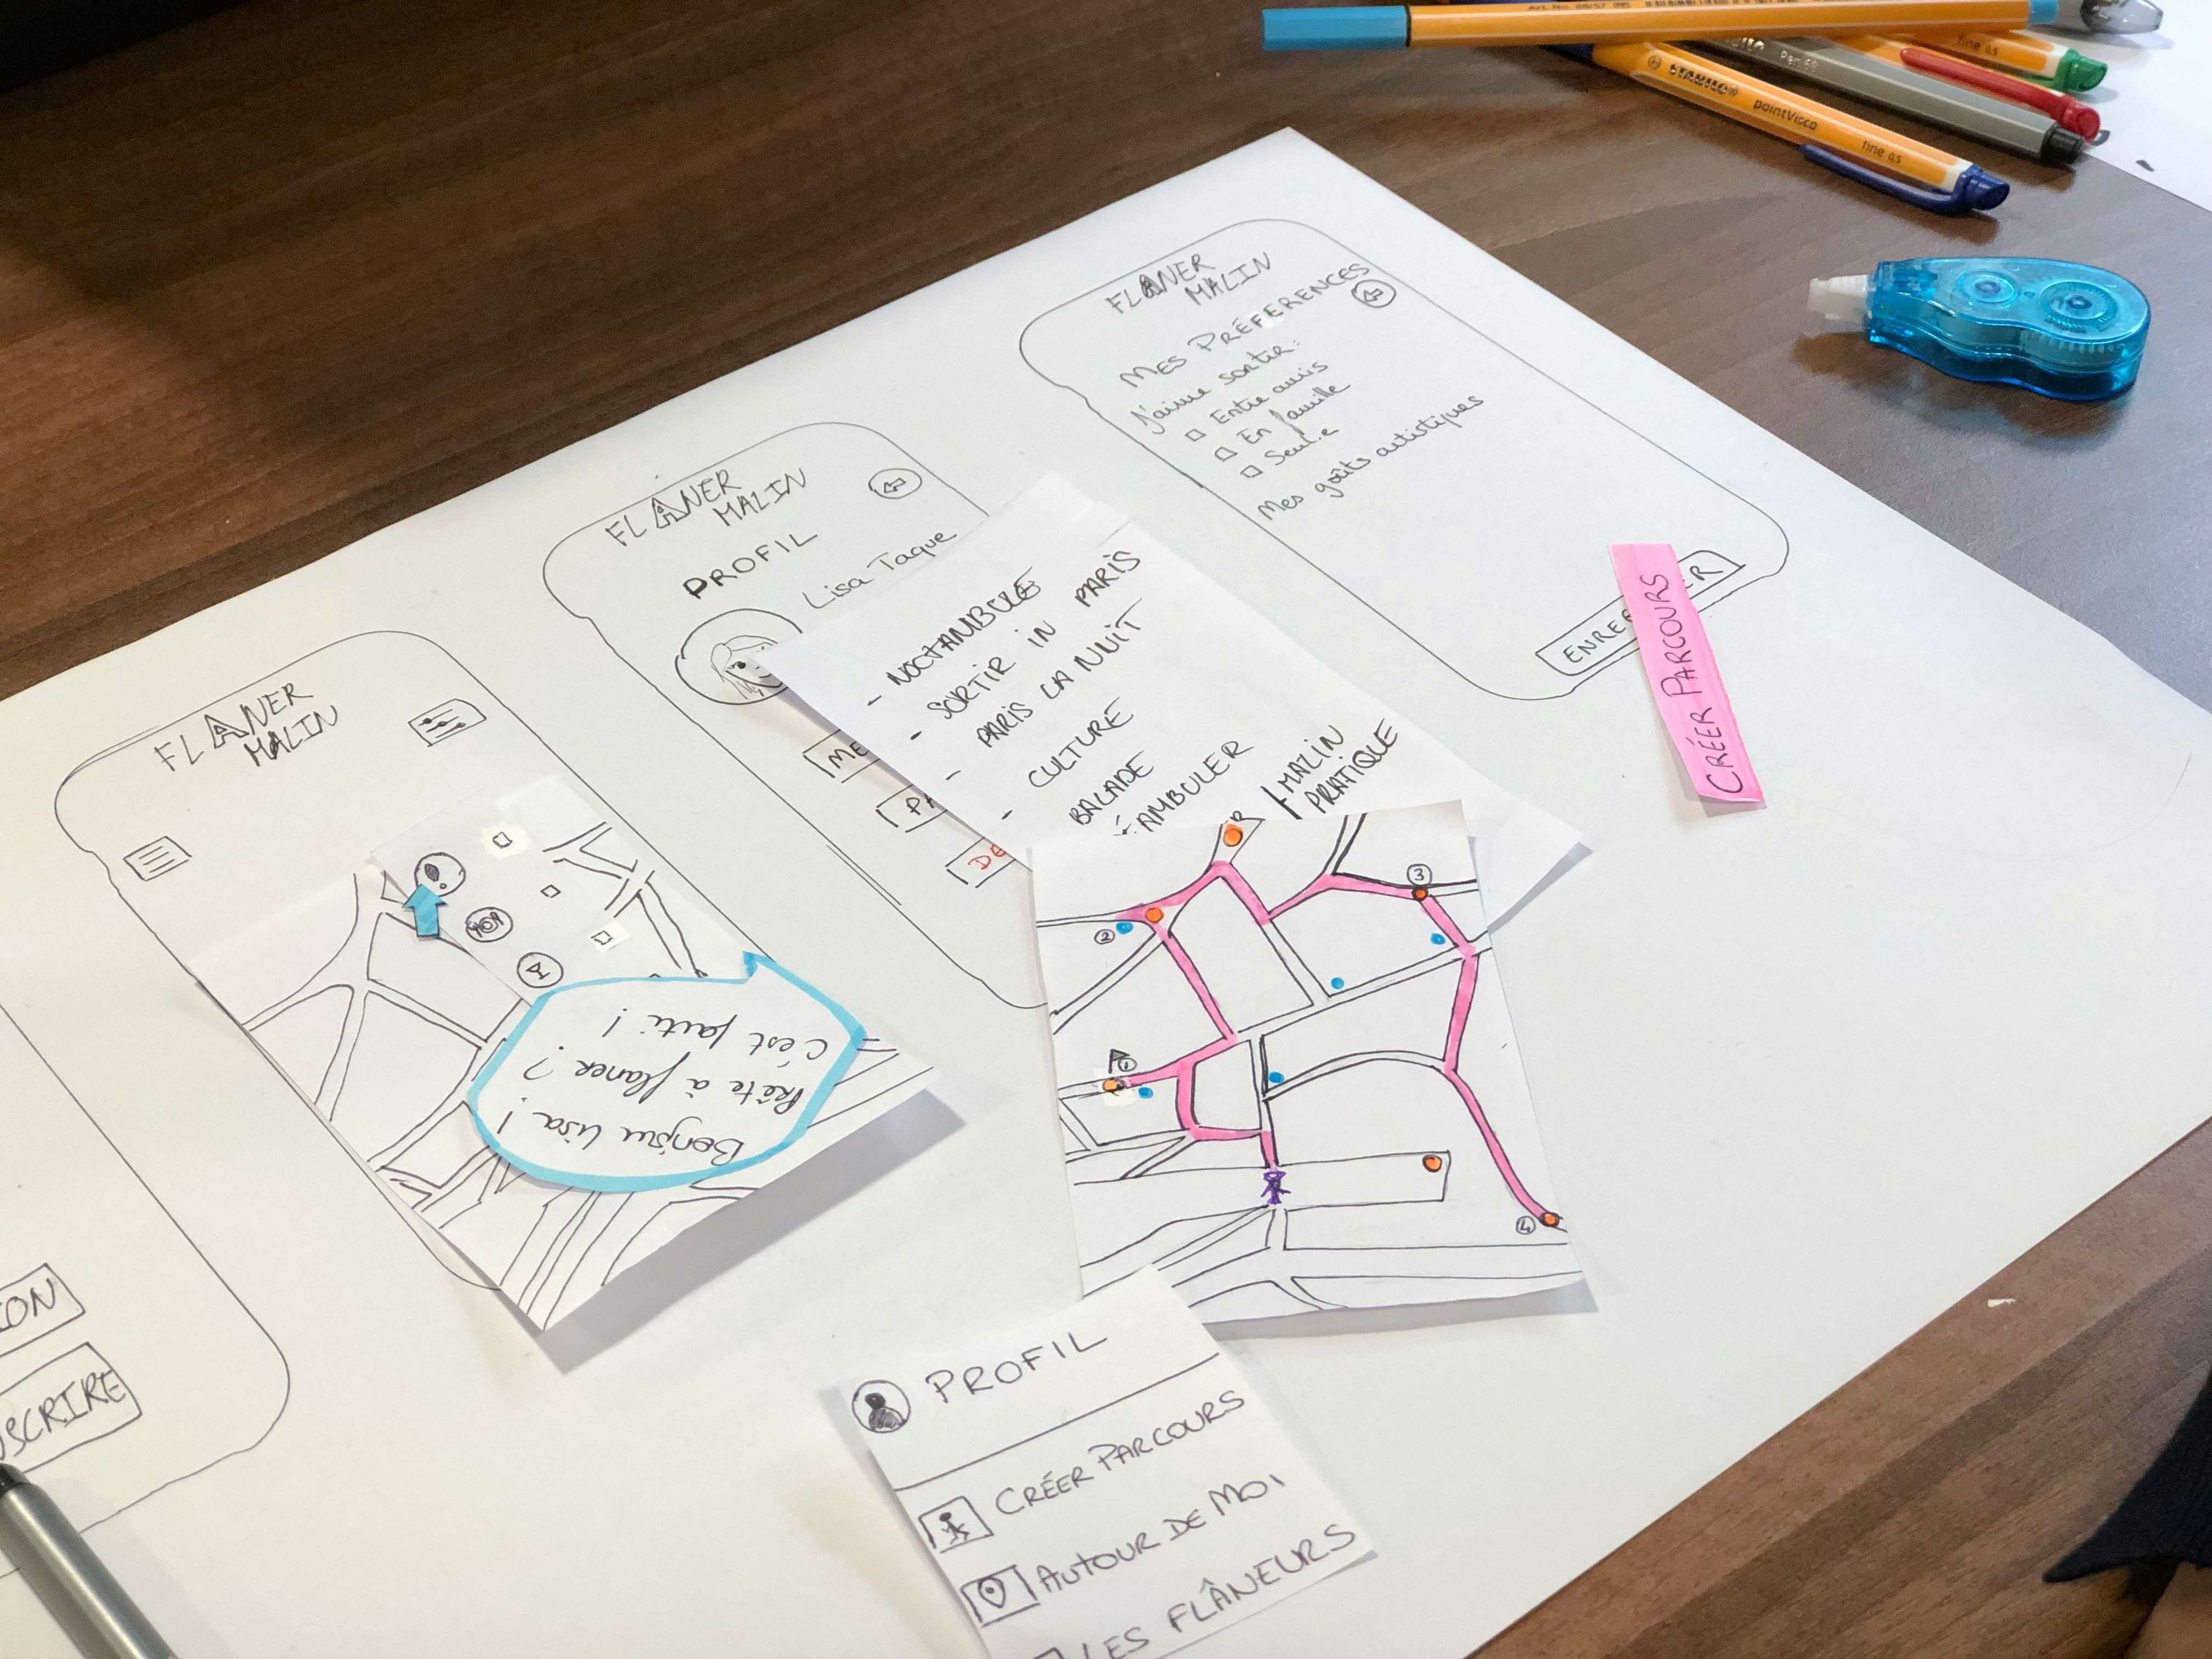 FLANER
MALIN
MES PRÉFERENCES
J'aime sortir:
Entre amis
En famille
Seul.e
Mes goûts artistiques
CRÉER PARCOURS
FLANER
MALIN
PROFIL
Lisa Taque
ME
PA
DE
- NOCTAMBULE
- SORTIR IN PARIS
- PARIS LA NUIT
- CULTURE
BALADE
AMBULER
MALIN
PRATIQUE
FLANER
MALIN
Bonjour Lisa !
Prête à flaner ?
C'est parti !
2
3
1
4
PROFIL
CRÉER PARCOURS
AUTOUR DE MOI
LES FLÂNEURS
ION
SCRIRE
STABILO®
pointVisco
fine 0,5
fine 0,5
Pen 68